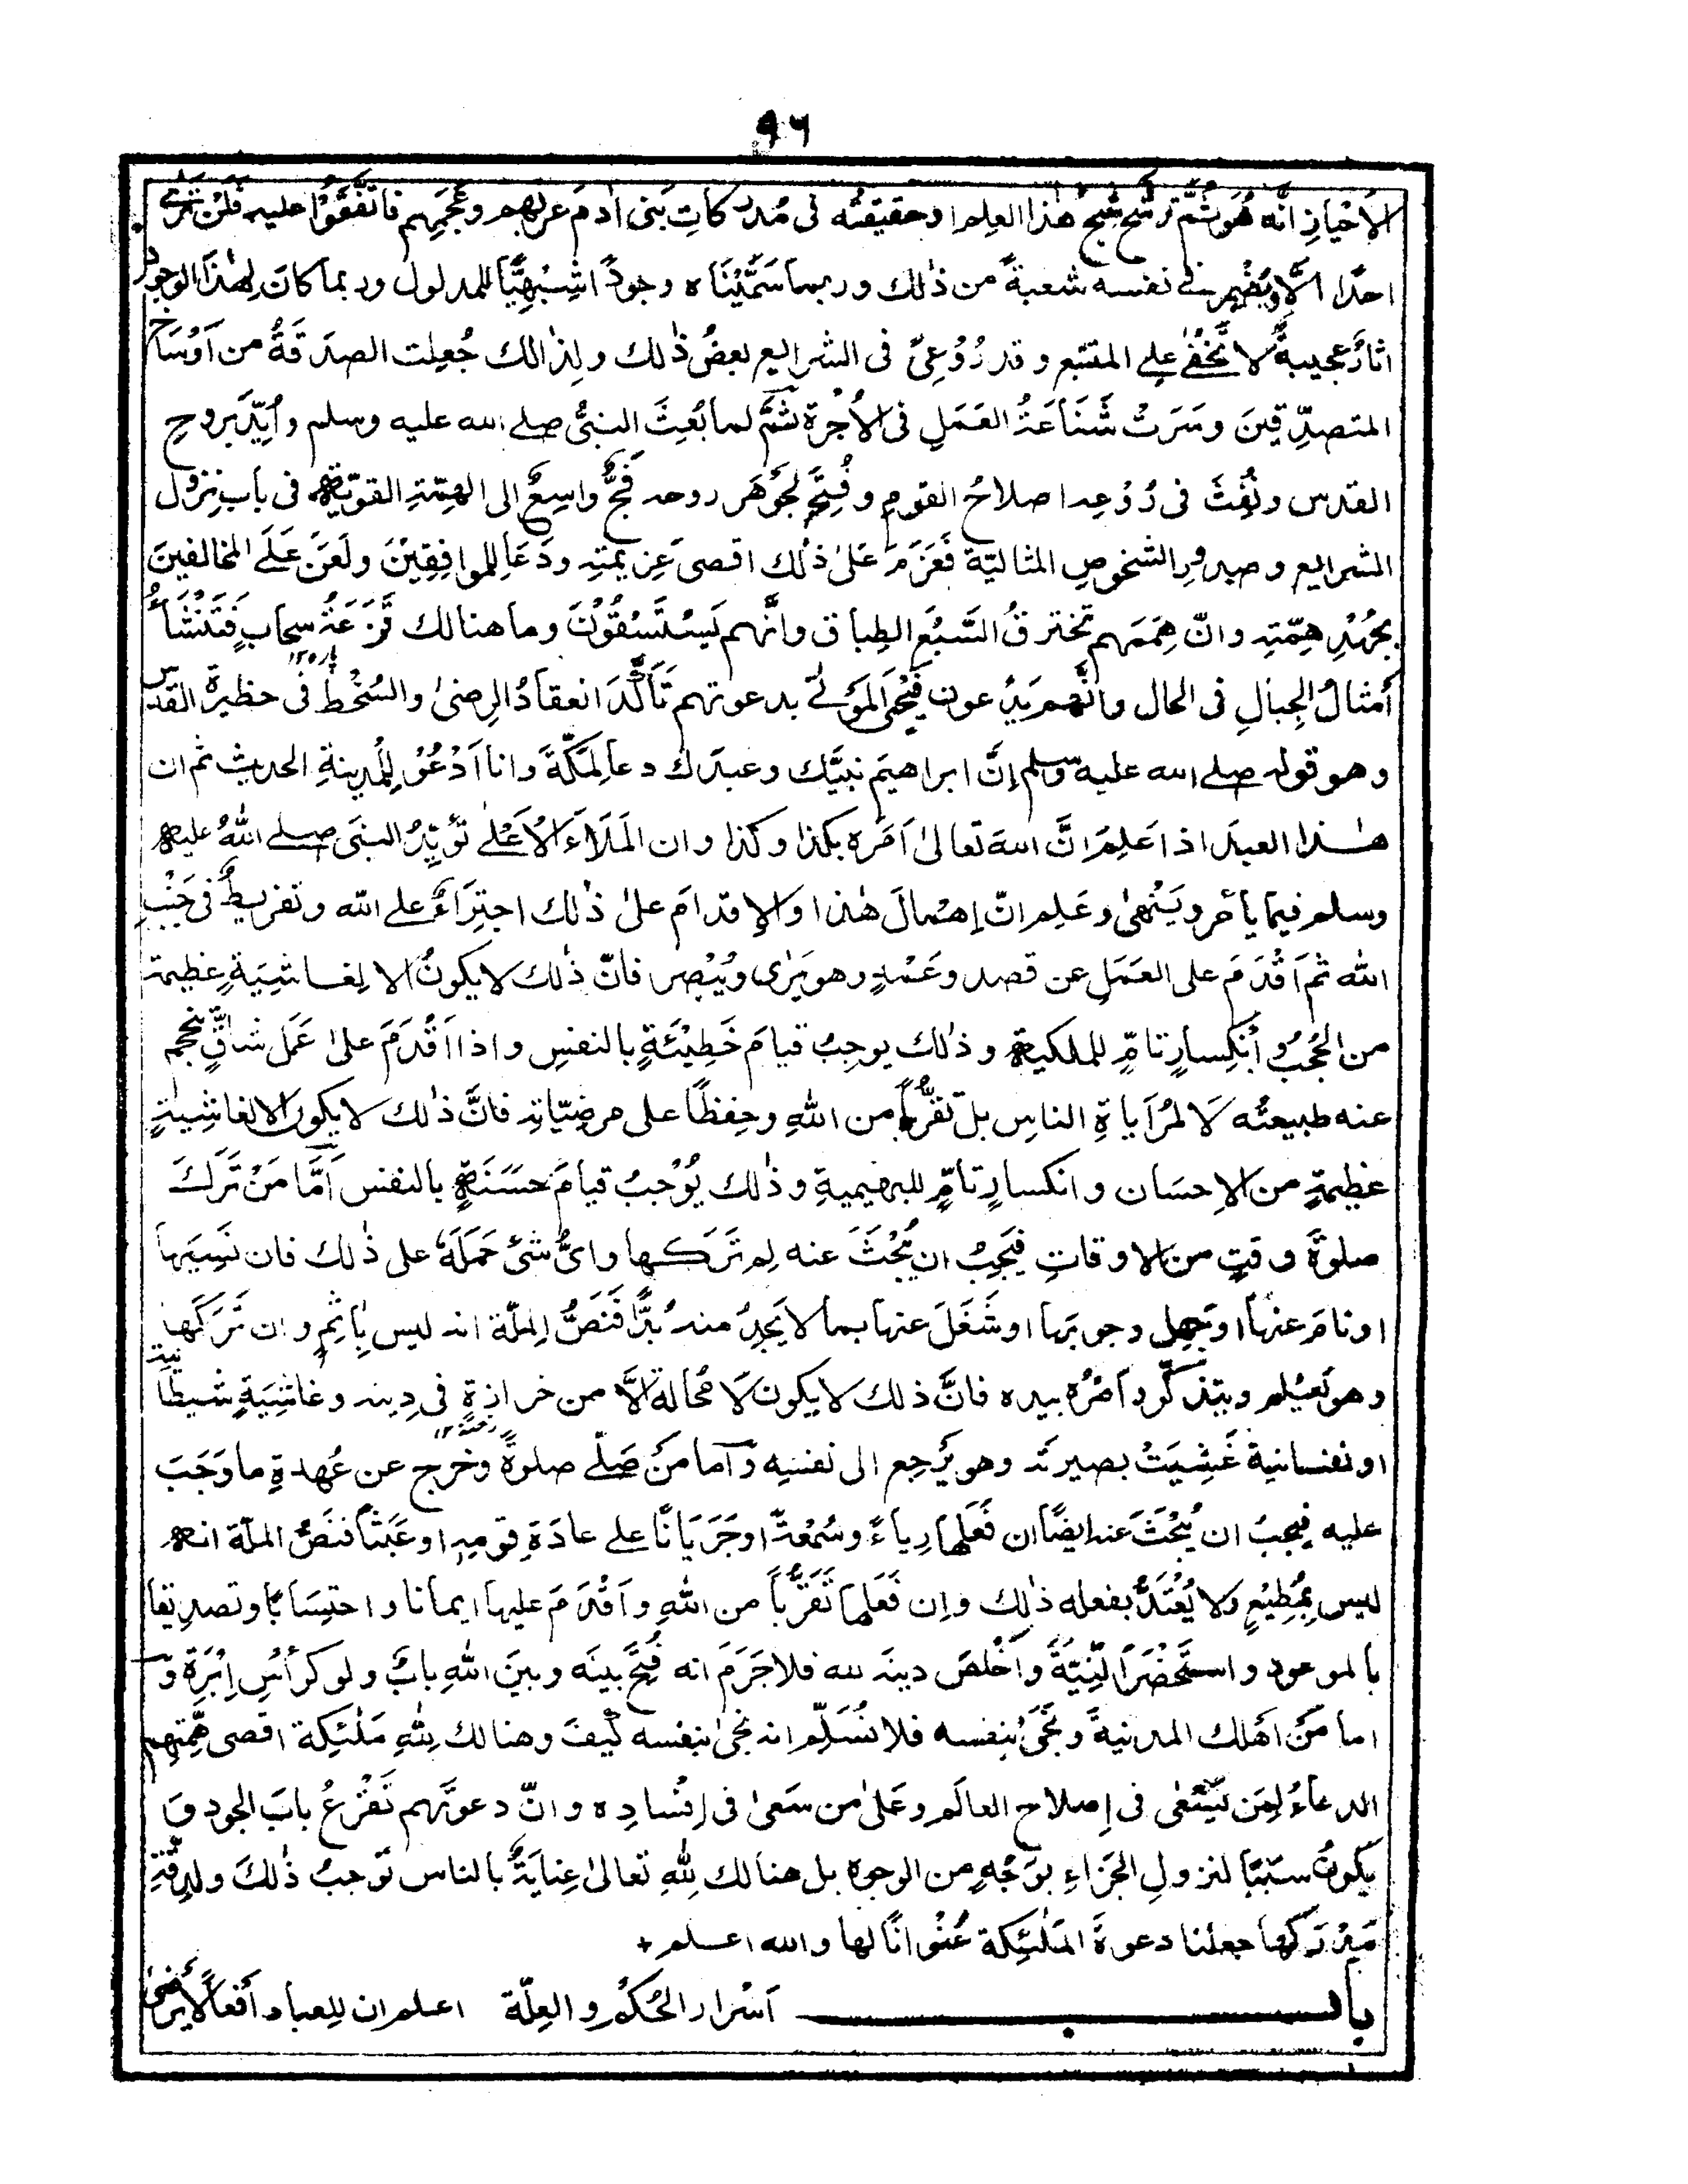 ٩٦
الاحيازِ انَّه هُوَ ثُمَّ ترشح شَبَحُ هٰذا العِلم وحقيقتُه فى مُدركاتِ بَنى اٰدمَ عربهم وعَجَمِهم فاتَّفَقُوْا عليه فَلَنْ تَرٰى
احدًا اِلَّا ويُضْمِرُ فے نفسه شعبةً من ذٰلك وربما سَمَّيْنَاه وجودًا شِبْهِيًّا للمدلول وربما كانَ لِهٰذَا الوجودِ
اٰثارٌ عجيبةٌ لا تَخْفٰى علے المتتبع وقد رُوْعِىَ فى الشرايع بعضُ ذٰلك ولِذٰالك جُعِلت الصدَقةُ من اَوْسَاخِ
المتصدِّقِينَ وسَرَتْ شَنَاعَةُ العَمَلِ فى الاُجْرة ثُمَّ لما بُعِثَ النبىُّ صلے الله عليه وسلم واُيِّدَ بروحِ
القدس ونُفِثَ فى رُوْعِه اصلاحُ القومِ وفُتِحَ لجَوْهَرِ روحه فَجٌّ واسِعٌ الى الهِمَّةِ القويّة فى باب نزول
الشرايع وصدورِ الشخوصِ المثاليّة فَعَزَمَ عَلىٰ ذٰلك اقصى عَزِيمتِه ودَعَا للموافِقِيْنَ ولَعَنَ عَلَے المخالفينَ
بجُهْدِ هِمّتِه وانّ هِمَمَهم تخترقُ السَّبْعَ الطِباق وانَّهم يَسْتَسْقُوْنَ وما هنالك قَزَعَةُ سحابٍ فَتَنْشَأُ
أمثالُ الجِبالِ فى الحال وانَّهم يَدْعون فيُحْيَ المَوْتٰى بدعوتهم تَأكَّدَ انعقادُ الرِضىٰ والسُخْطِ فى حظيرة القدس
وهو قوله صلے الله عليه وسلم إنَّ ابراهيمَ نبيَّك وعبدَك دعا لِمَكّةَ وانا اَدْعُوْ لِلْمدينةِ الحديث ثم ان
هٰذا العبدَ اذا عَلِمَ انَّ اللهَ تعالىٰ اَمَرَه بكذا وكذا وان المَلَاءَ الاَعْلٰے تُؤيّدُ النبىَ صلے اللهُ عليه
وسلم فيما يأمر ويَنْهىٰ وعَلِم انّ إهمالَ هٰذا والإقدامَ علىٰ ذٰلك اجتِرَاءٌ علے الله وتفريطٌ فى جَنْبِ
الله ثم اَقْدَمَ على العَمَلِ عن قصد وعَمْدٍ وهو يَرٰى ويُبْصِر فانّ ذٰلك لا يكونُ الا لِغاشِيَةٍ عظيمة
من الحُجُبِ وانْكِسارٍ تامٍّ للملكية وذٰلك يوجِبُ قيامَ خَطِيْئَةٍ بالنفسِ واذا اَقْدَمَ علىٰ عَمَل شاقٍّ يُحجم
عنه طبيعتُه لَا لمُرَاَياةِ الناسِ بل تقرُّباً من اللهِ وحِفظاً على مرضِيّاتِه فانَّ ذٰلك لا يكون الا لغاشِيةٍ
عظيمةٍ من الاِحسَان وانكسارٍ تامٍّ للبهيميةِ وذٰلك يُوْجِبُ قيامَ حَسَنَةٍ بالنفس اَمَّا مَنْ تَرَكَ
صلوةَ وقتٍ من الاوقاتِ فيَجِبُ ان يُبْحَثَ عنه لِمَ تَرَكها واىُّ شىءٍ حَمَلَهٗ على ذٰلك فان نَسِيَها
او نامَ عنها او جَهِلَ وجوبَها او شَغَلَ عنها بما لا يَجِدُ منه بُدًّا فَنَصُّ المِلّة انه ليس بِاٰثِمٍ وان تَرَكَها
وهو يَعْلم ويتذكّر واَمْرُه بيده فانَّ ذلك لا يكون لَا مُحالةَ اِلَّا من خرازةٍ فى دِينه وغاشِيَةٍ شيطانيّة
او نفسانية غَشِيَتْ بصيرتَه وهو يَرْجِع الى نفسِه واَما مَنْ صَلّٰے صلوةً وخرج عن عُهدةِ ما وَجَبَ
عليه فيجبُ ان يُبْحَثَ عنه ايضًا ان فَعَلَها رِياءً وسُمْعَةً او جَرَيَانًا علے عادَةِ قومِه او عَبَثًا فنَصُّ الملّة انه
ليس بمُطِيْعٍ ولا يُعْتَدُّ بفعله ذٰلك وان فَعَلَها تَقَرُّباً من اللهِ واَقْدَمَ عليها ايمانا واحتِسَابًا وتصديقا
بالموعود واستَحْضَرَ النِّيّةَ واَخْلَصَ دينَه لله فلا جَرَمَ انه فُتِحَ بينَه وبينَ اللهِ بابٌ ولو كرأسِ اِبْرَةٍ وَ
اما مَنْ اَهلك المدينةَ ونَجٰى بنفسه فلا نُسَلِّم انه نجىٰ بنفسه كَيفَ وهنالك لِلّٰهِ مَلٰئِكة اقصى هِمَّتِهم
الدعاءُ لِمَن يَسْعٰى فى إصلاحِ العالَم وعَلىٰ من سَعىٰ فى اِفسادِه وانّ دعوتَهم تَقْرَعُ بابَ الجود وَ
يكونُ سبَبًا لنزولِ الجَزَاءِ بوَجْهٍ من الوجوه بل هنالك لِلّٰهِ تعالىٰ عِنايَةٌ بالناس تُوجبُ ذٰلكَ ولِدِقّةِ
مَدْرَكِها جعلنا دعوةَ المَلٰئِكة عُنْوانًا لها والله اعلم +
باب اَسْرار الحُكْمِ والعِلّة اعلم ان للعباد أفعالًا يَرْضىٰ